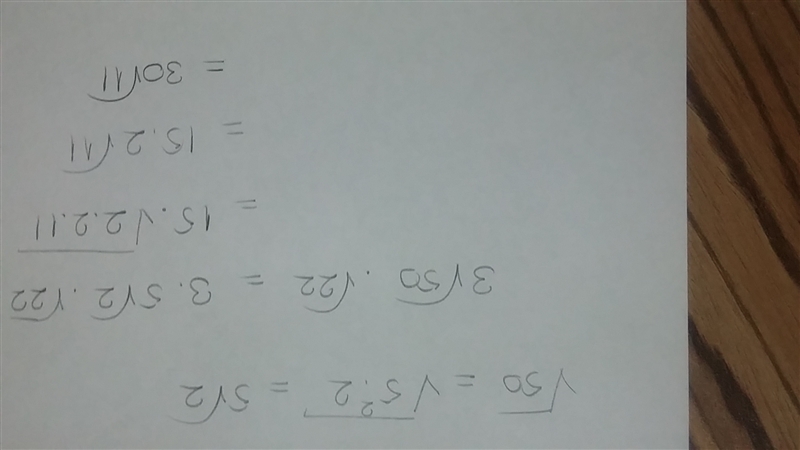 √50 = √5².2 = 5√2
3√50 . √22 = 3.5√2.√22
= 15.√2.2.11
= 15.2√11
= 30√11